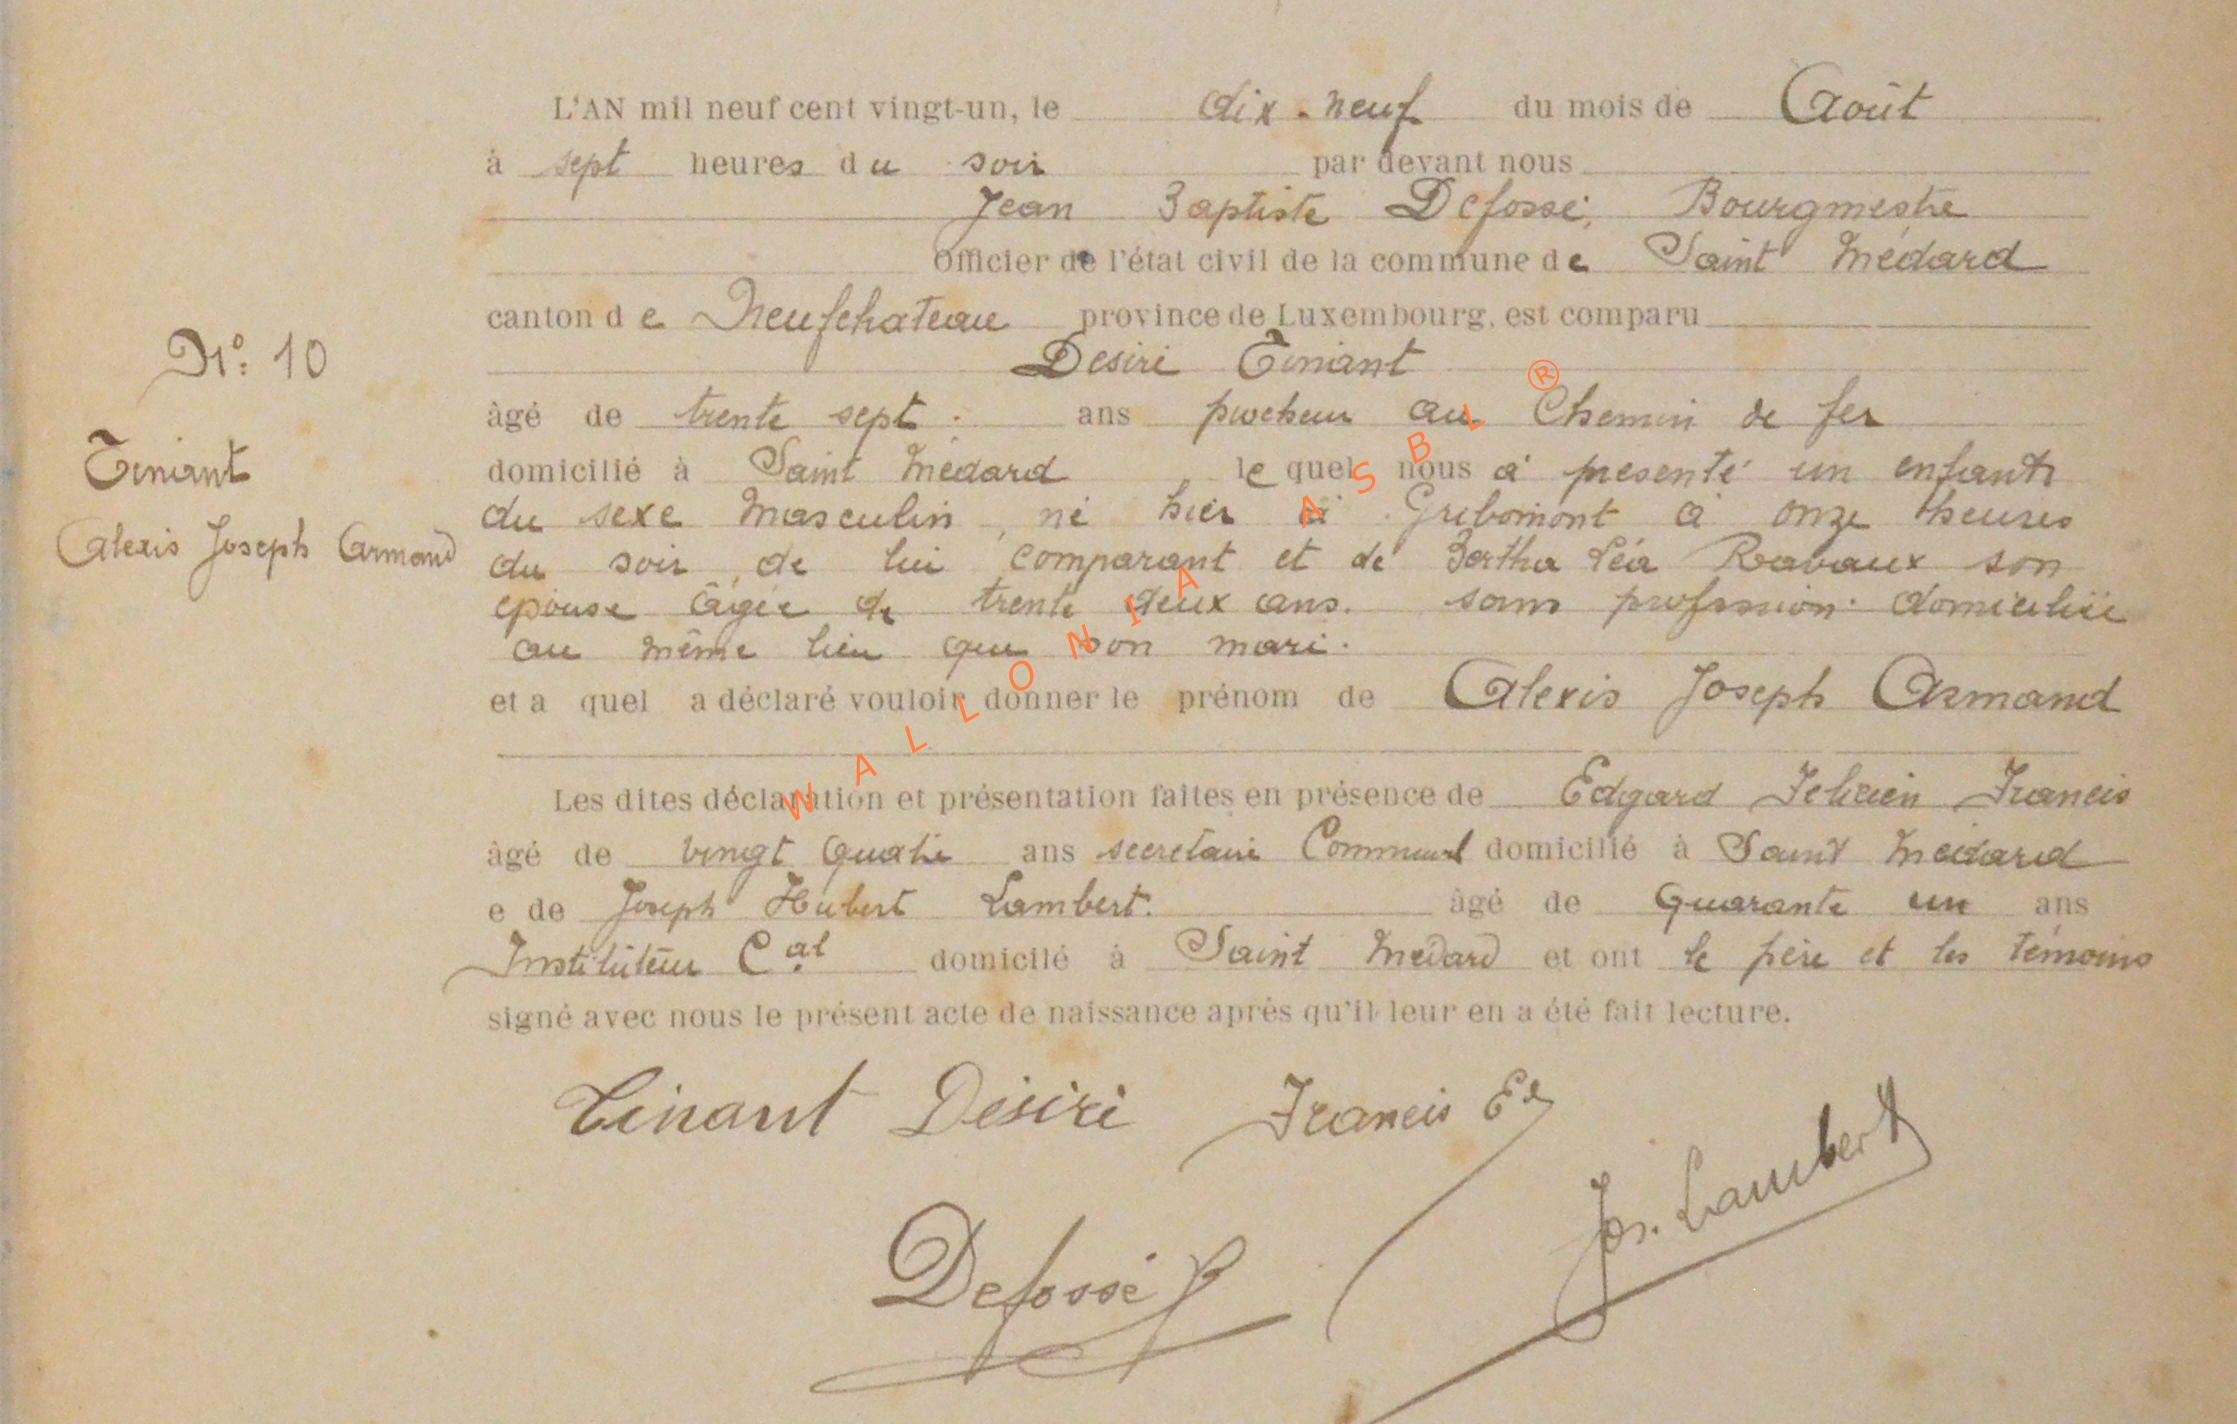 L'AN mil neuf cent vingt-un, le dix-neuf du mois de Août
à sept heures du soir par devant nous
Jean Baptiste Defossé, Bourgmestre
Officier de l'état civil de la commune de Saint Médard
canton de Neufchateau province de Luxembourg, est comparu
Nº: 10
Désiré Tinant
âgé de trente sept ans piocheur au Chemin de fer
Tinant
domicilié à Saint Médard le quel nous a présenté un enfant
du sexe Masculin, né hier à Gribomont à onze heures
Alexis Joseph Armand
du soir, de lui comparant et de Bertha Léa Ravaux son
épouse âgée de trente deux ans. sans profession. domiciliée
au même lieu que son mari.
et a quel a déclaré vouloir donner le prénom de Alexis Joseph Armand
Les dites déclaration et présentation faites en présence de Edgard Félicien Francis
âgé de vingt quatre ans secrétaire Communal domicilié à Saint Médard
e de Joseph Hubert Lambert. âgé de quarante un ans
Instituteur Cal domicilé à Saint Médard et ont le père et les témoins
signé avec nous le présent acte de naissance après qu'il leur en a été fait lecture.
Tinant Désiré Francis Ed
Jos. Lambert
Defossé JB
WALLONIA ASBL ®